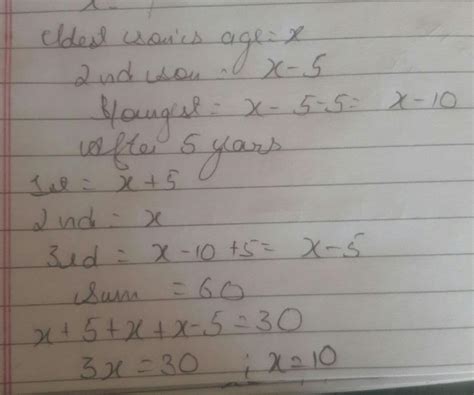 Eldest son's age = x
2nd son = x-5
Youngest = x-5-5= x-10
After 5 years
1st = x+5
2nd = x
3rd = x-10+5= x-5
Sum = 60
x+5+x+x-5=30
3x=30 ; x=10